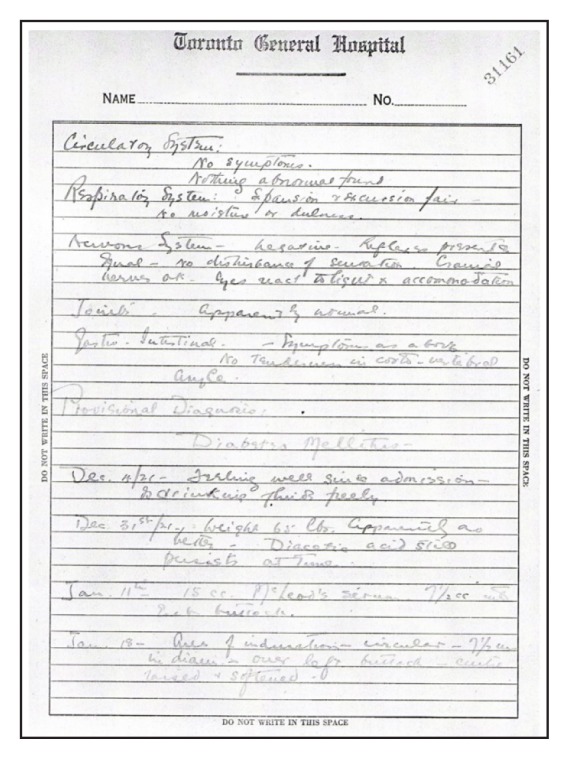 Toronto General Hospital
31161
NAME No.
Circulatory System:
No symptoms.
Nothing abnormal found
Respiratory System: Expansion & excursion fair -
no moisture or dulness.
Nervous System - negative - Reflexes present &
equal - no disturbance of sensation. Cranial
nerves ok. Eyes react to light & accommodation
Joints - apparently normal.
Gastro-Intestinal. - Symptoms as above
No tenderness in costo-vertebral
angle.
Provisional Diagnosis:
Diabetes Mellitus -
Dec. /21 - Feeling well since admission -
drinking fluids freely
Dec. 31st/21. Weight 65 lbs. Apparently no
better - Diacetic acid still
persists at time.
Jan. 11th 15 cc. McLeod's serum. 7 1/2 cc into
each buttock.
Jan. 18 - Area of induration - circular - 7 1/2 cm
in diam - over left buttock - centre
raised & softened.
DO NOT WRITE IN THIS SPACE
DO NOT WRITE IN THIS SPACE
DO NOT WRITE IN THIS SPACE